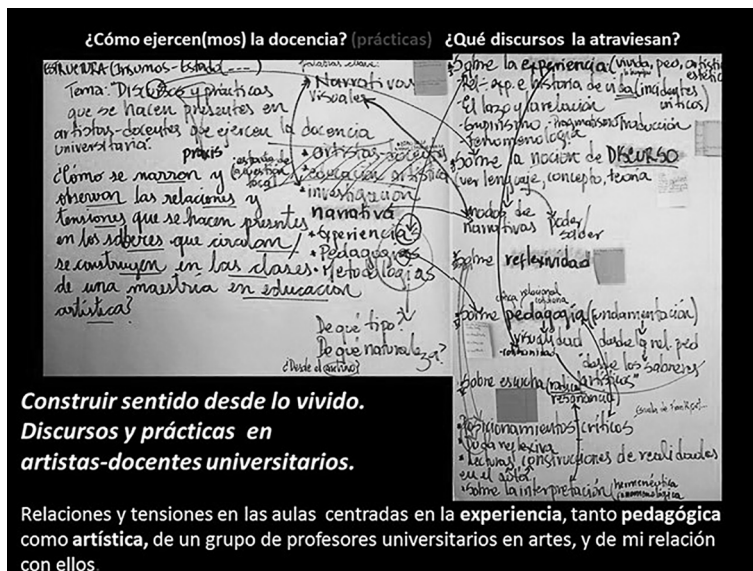 ¿Cómo ejercen(mos) la docencia? (prácticas) ¿Qué discursos la atraviesan?
ESTRUCTURA (Insumos - Estado
Tema: "Discursos y prácticas
que se hacen presentes en
artistas-docentes que ejercen la docencia
universitaria.
praxis
¿Cómo se narran y
observan las relaciones y
tensiones que se hacen presentes
en los saberes que circulan /
se construyen en las clases
de una maestría en educación
artística?
Narrativas
visuales
• artistas-docentes
• educación artística
• investigación
narrativa
• Experiencia
• Pedagogías
• Metodologías
De qué tipo?
De qué naturaleza?
¿Desde el archivo?
Sobre la experiencia: (vivida, ped, artística
estética
Rel. exp. e historia de vida (incidentes
críticos)
- El lazo y la relación
- Pragmatismo Traducción
fenomenología
Sobre la noción de DISCURSO
(ver lenguaje, concepto, teoría
modos de
narrativas
poder/
saber
Sobre reflexividad
relacional
Sobre pedagogía (fundamentación)
visualidad
desde la rel. ped
"desde los saberes
artísticos"
Sobre escucha
resonancia
Posicionamientos críticos
reflexiva
• Lecturas / construcciones de realidades
• Sobre la interpretación (hermenéutica
fenomenológica
Construir sentido desde lo vivido.
Discursos y prácticas en
artistas-docentes universitarios.
Relaciones y tensiones en las aulas centradas en la experiencia, tanto pedagógica
como artística, de un grupo de profesores universitarios en artes, y de mi relación
con ellos.